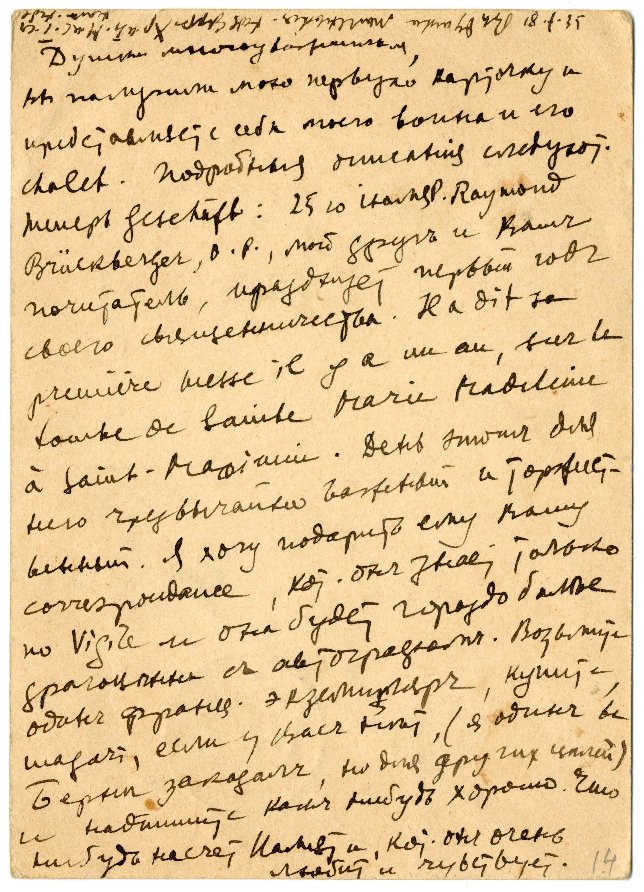 Душки многоуважаемые,
вы получили мою первую карточку и
представляете себе моего воина и его
chalet. Подробныя описанія следуют.
Теперь Geschäft: 25го Raymond
Brückberger, O.P., мой другъ и Вашъ
почитатель, празднует первый годъ
своего священничества. Il a dit sa
première messe il y a un an, sur la
tombe de Sainte Marie Madeleine
à Saint-Maximin. День этотъ для
него чрезвычайно важный и торжест-
венный. Я хочу подарить ему Вашу
correspondance, кот. онъ знает только
по Vigile и она будет гораздо более
драгоценна съ автографомъ. Возьмите
одинъ франц. экземпляръ, купите,
если у Васъ нет, (я одинъ въ
Берне заказалъ, но для других целей)
и надпишите какъ нибудь хорошо. Что
нибудь насчет, кот. онъ очень
любит и чувствует.
14